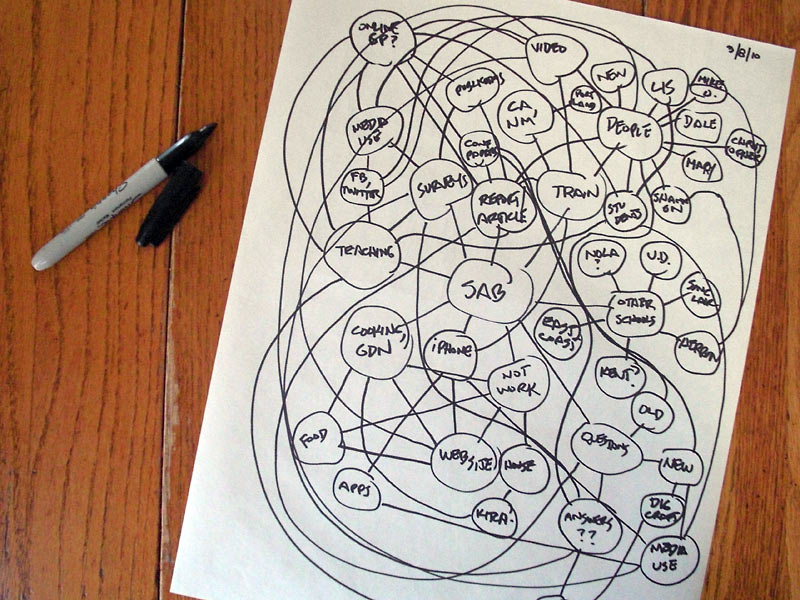 3/8/10
ONLINE
GP?
VIDEO
NEW
LIS
MIKE
D.
PUBLISHERS
CA,
NM,
PORT
LAND
PEOPLE
DALE
MEDIA
USE
CONF
PAPERS
MARY
FB,
TWITTER
SURVEYS
REFING
ARTICLE
TRAIN
STU
DENTS
SHANNON
TEACHING
NOLA
?
U.D.
SAB
OTHER
SCHOOLS
COOKING,
GDN
iPHONE
EAST
COAST
NOT
WORK
KENT?
OLD
FOOD
WEB
SITE
HOUSE
QUESTIONS
NEW
APPS
KIRA!
ANSWERS
??
DIG
CROPS
MEDIA
USE
Sharpie